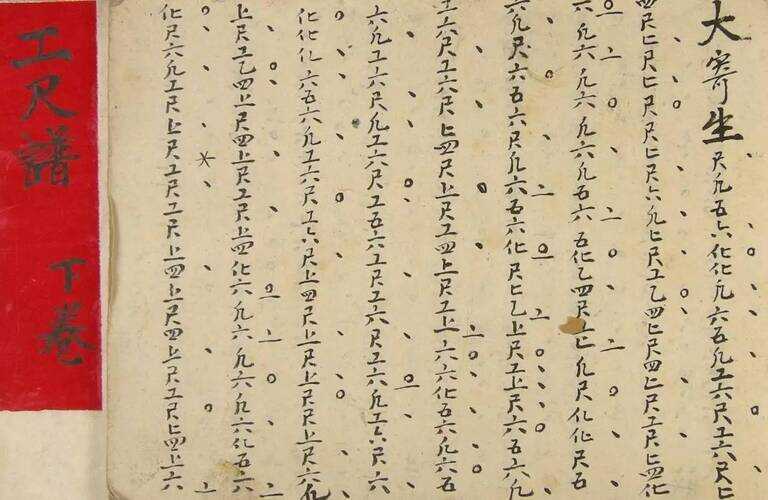 工尺譜 下卷
大寄生
尺凡五六化化凡六五凡工六尺工六尺上
尺上尺上尺尺上尺六凡上尺工乙四上尺四上尺工尺上四化
六凡六凡六凡六凡五六五化乙四尺上凡尺化化尺五
六凡尺六五六尺凡六五六化尺上乙上尺工上尺六五六凡
工六尺工六尺上四尺上尺上尺工四上尺工上六六化五六凡六五
六凡工六尺凡工六尺工五六工尺工六尺工六凡工六尺六
化化化六五六凡工六尺工六尺上四尺上尺上尺尺上尺六凡
上尺工乙四上尺四上尺工尺上四化六凡六凡六凡六化五六
化尺六凡工尺上尺工尺工尺上四上尺四上尺工尺上四上六